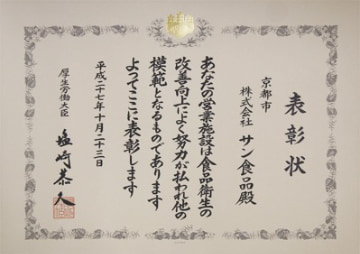 表彰状
京都市
株式会社 サン食品殿
あなたの営業施設は食品衛生の
改善向上によく努力が払われ他の
模範となるものであります
よってここに表彰します
平成二十七年十月二十三日
厚生労働大臣
塩崎恭久